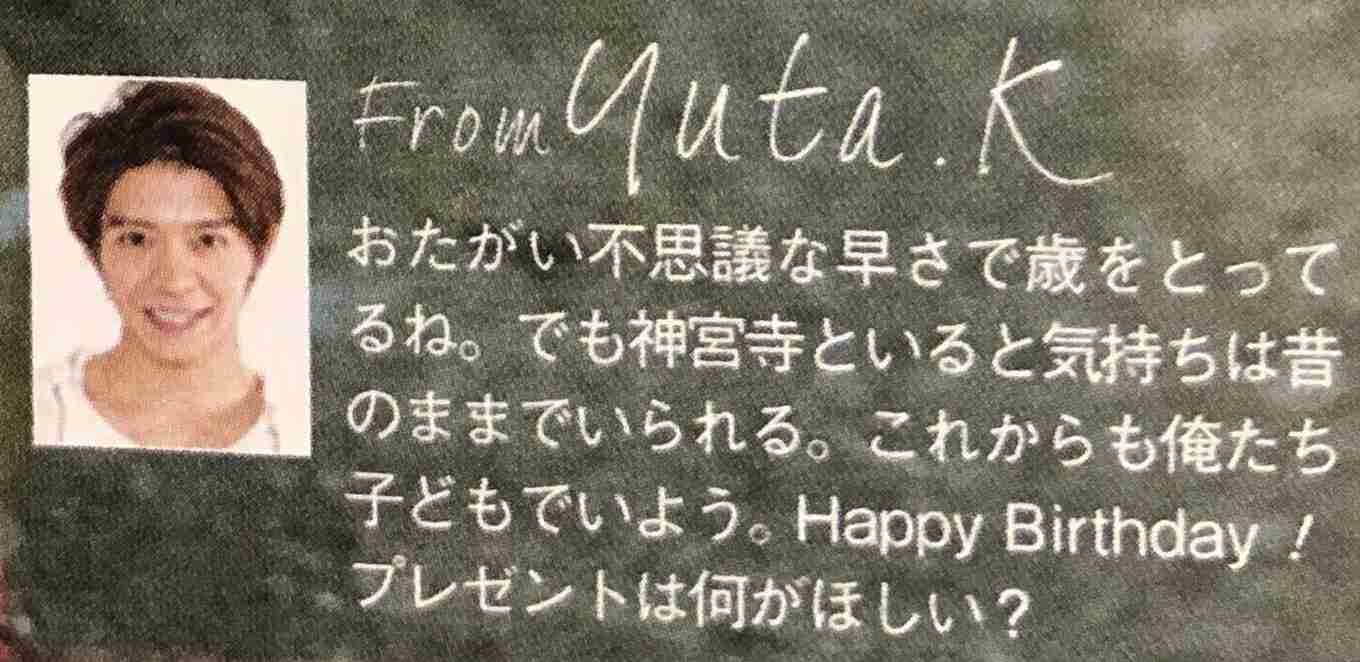 From Yuta.K
おたがい不思議な早さで歳をとって
るね。でも神宮寺といると気持ちは昔
のままでいられる。これからも俺たち
子どもでいよう。Happy Birthday！
プレゼントは何がほしい？